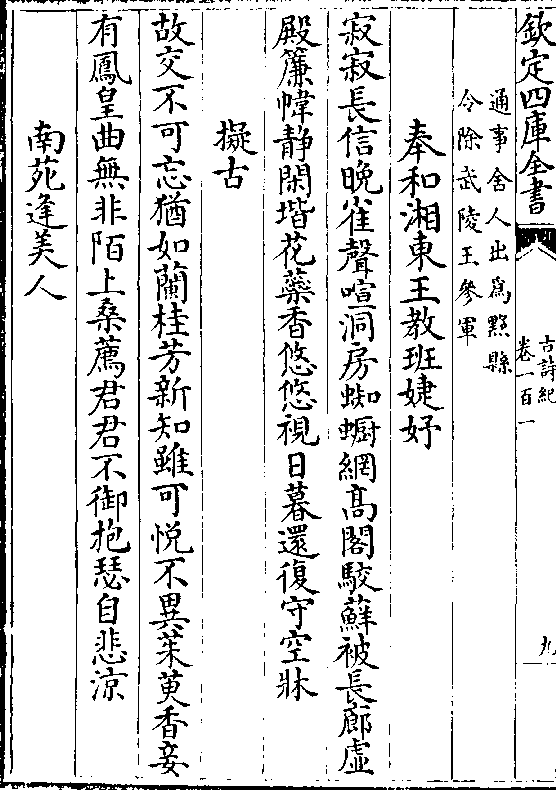 欽定四庫全書
古詩紀
卷一百一
九
通事舍人出爲黟縣
令除武陵王參軍
奉和湘東王教班婕妤
寂寂長信晩雀聲喧洞房蜘蟵網髙閣駮蘚被長廊虚
殿簾幃静閑堦花藥香悠悠視日暮還復守空牀
擬古
故交不可忘猶如蘭桂芳新知雖可悦不異茱萸香妾
有鳳皇曲無非陌上桑薦君君不御抱瑟自悲凉
南苑逢美人